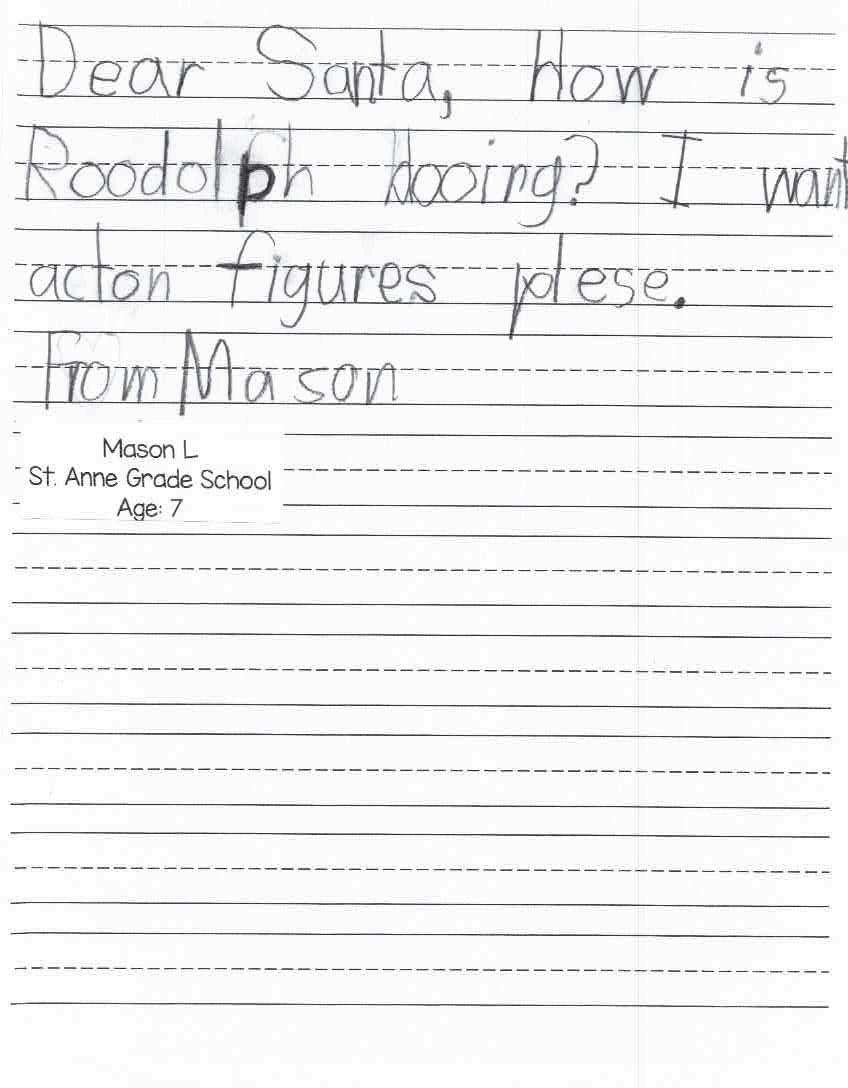 Dear Santa, How is
Roodolph dooing? I want
acton figures plese.
From Mason
Mason L
St. Anne Grade School
Age: 7